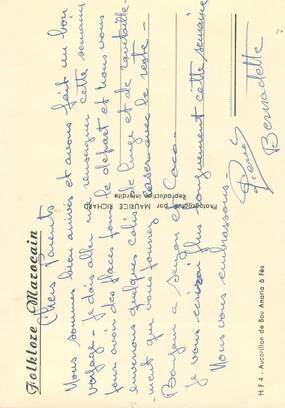 Folklore Marocain
Chers Parents
Nous sommes bien arrivés et avons fait un bon
voyage - je dois aller me renseigner cette semaine
pour avoir des places pour le départ et nous vous
enverrons quelques colis de linge et de
ment que vous pourrez laisser avec le reste -
Baryan a Suzon et Coco -
Je vous écrirai plus longuement cette semaine
Nous vous embrassons
Pierre
Bernadette
Photographie par MAURICE RICHARD
Reproduction interdite
H F 4 - Aucarillon de Bou Anania à Fès